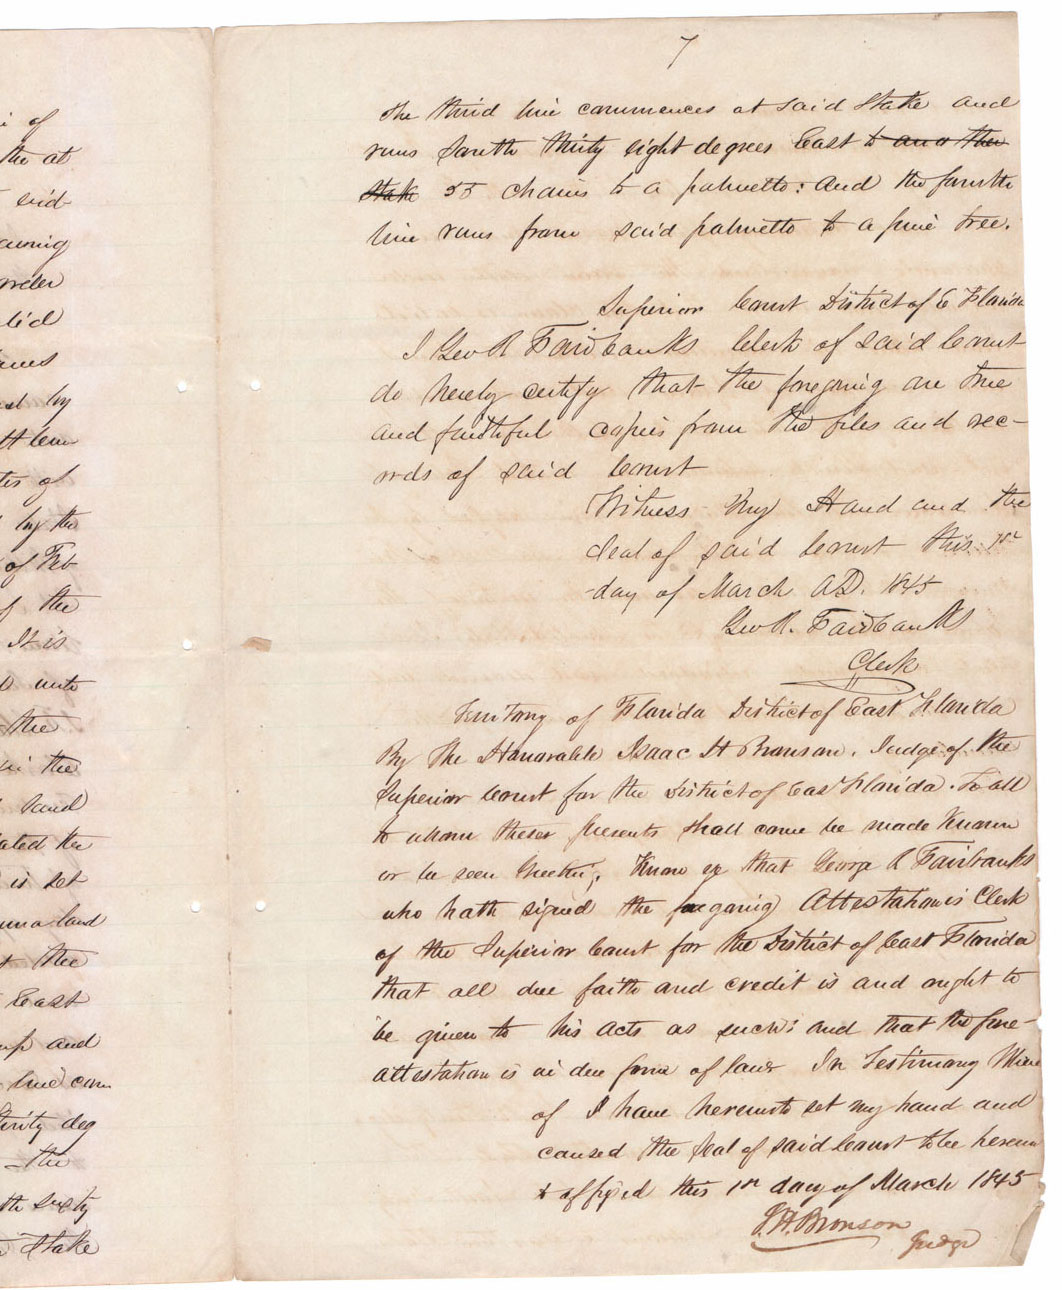 i of
the at
said
auing
lid
by
H
of
by the
of Feb
of the
It is
unto
the
in the
land
ated the
is set
land
t the
East
up and
line com
thirty deg
the
th sixty
Stake
7
the third line commences at said Stake and
runs South thirty eight degrees East to another
stake 55 chains to a palmetto: And the fourth
line runs from said palmetto to a pine tree.
Superior Court District of E Florida
I Geo R Fairbanks Clerk of said Court
do hereby certify that the foregoing are true
and faithful copies from the files and rec-
ords of said Court
Witness My Hand and the
Seal of said Court this 1st
day of March AD. 1845
Geo R. Fairbanks
Clerk
Territory of Florida District of East Florida
By the Honorable Isaac H Bronson. Judge of the
Superior Court for the District of East Florida. To all
to whom these presents shall come be made Known
or be seen Greeting; Know ye that George R Fairbanks
who hath signed the foregoing Attestation is Clerk
of the Superior Court for the District of East Florida
that all due faith and credit is and ought to
be given to his acts as such: and that the fore-
attestation is in due form of law. In Testimony Where
of I have hereunto set my hand and
caused the Seal of said Court to be hereun
to affixed this 1st day of March 1845
I.H. Bronson
Judge